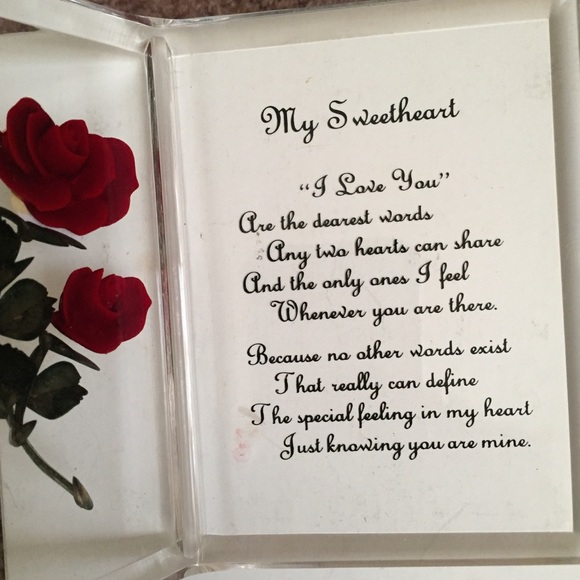 My Sweetheart
“I Love You”
Are the dearest words
Any two hearts can share
And the only ones I feel
Whenever you are there.
Because no other words exist
That really can define
The special feeling in my heart
Just knowing you are mine.